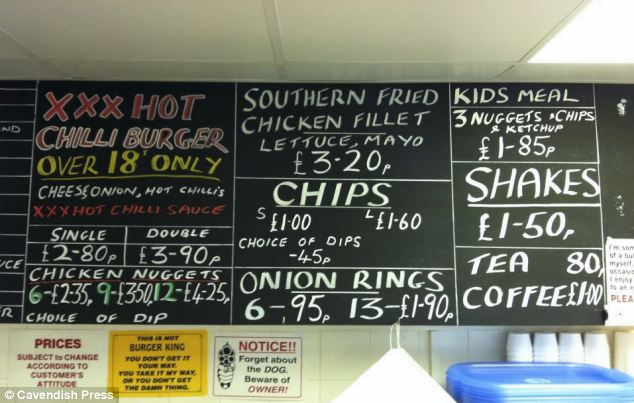 XXX HOT
CHILLI BURGER
OVER 18's ONLY
CHEESE ONION, HOT CHILLI'S
XXX HOT CHILLI SAUCE
SINGLE DOUBLE
£2-80p £3-90p
CHICKEN NUGGETS
6-£2.35, 9-£3.50, 12-£4-25p
CHOICE OF DIP
SOUTHERN FRIED
CHICKEN FILLET
LETTUCE, MAYO
£3-20p
CHIPS
S £1.00 L £1-60
CHOICE OF DIPS
-45p
ONION RINGS
6-,95p 13-£1-90p
KIDS MEAL
3 NUGGETS & CHIPS
& KETCHUP
£1-85p
SHAKES
£1-50p
TEA 80p
COFFEE £1.00
I'm som
of a bu
myself.
occasio
I enjoy
to an e
PLEA
ND
UCE
ER
PRICES
SUBJECT to CHANGE
ACCORDING TO
CUSTOMER'S
ATTITUDE
THIS IS NOT
BURGER KING
YOU DON'T GET IT
YOUR WAY.
YOU TAKE IT MY WAY,
OR YOU DON'T GET
THE DAMN THING.
NOTICE!!
Forget about
the DOG.
Beware of
OWNER!
© Cavendish Press